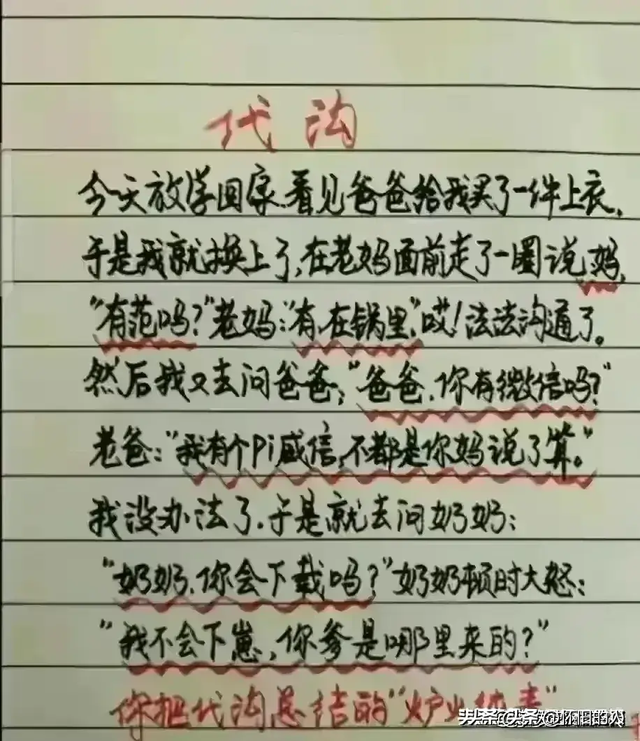 代沟
今天放学回家,看见爸爸给我买了一件上衣,
于是我就换上了,在老妈面前走了一圈说妈,
"有范吗?"老妈:"有,在锅里,"哎!法法沟通了。
然后我又去问爸爸;"爸爸.你有微信吗?"
老爸:"我有个Pi威信,不都是你妈说了算。"
我没办法了.于是就去问奶奶:
"奶奶.你会下载吗?"奶奶顿时大怒:
"我不会下崽,你爹是哪里来的?"
你把代沟总结的"炉火纯青"
头条